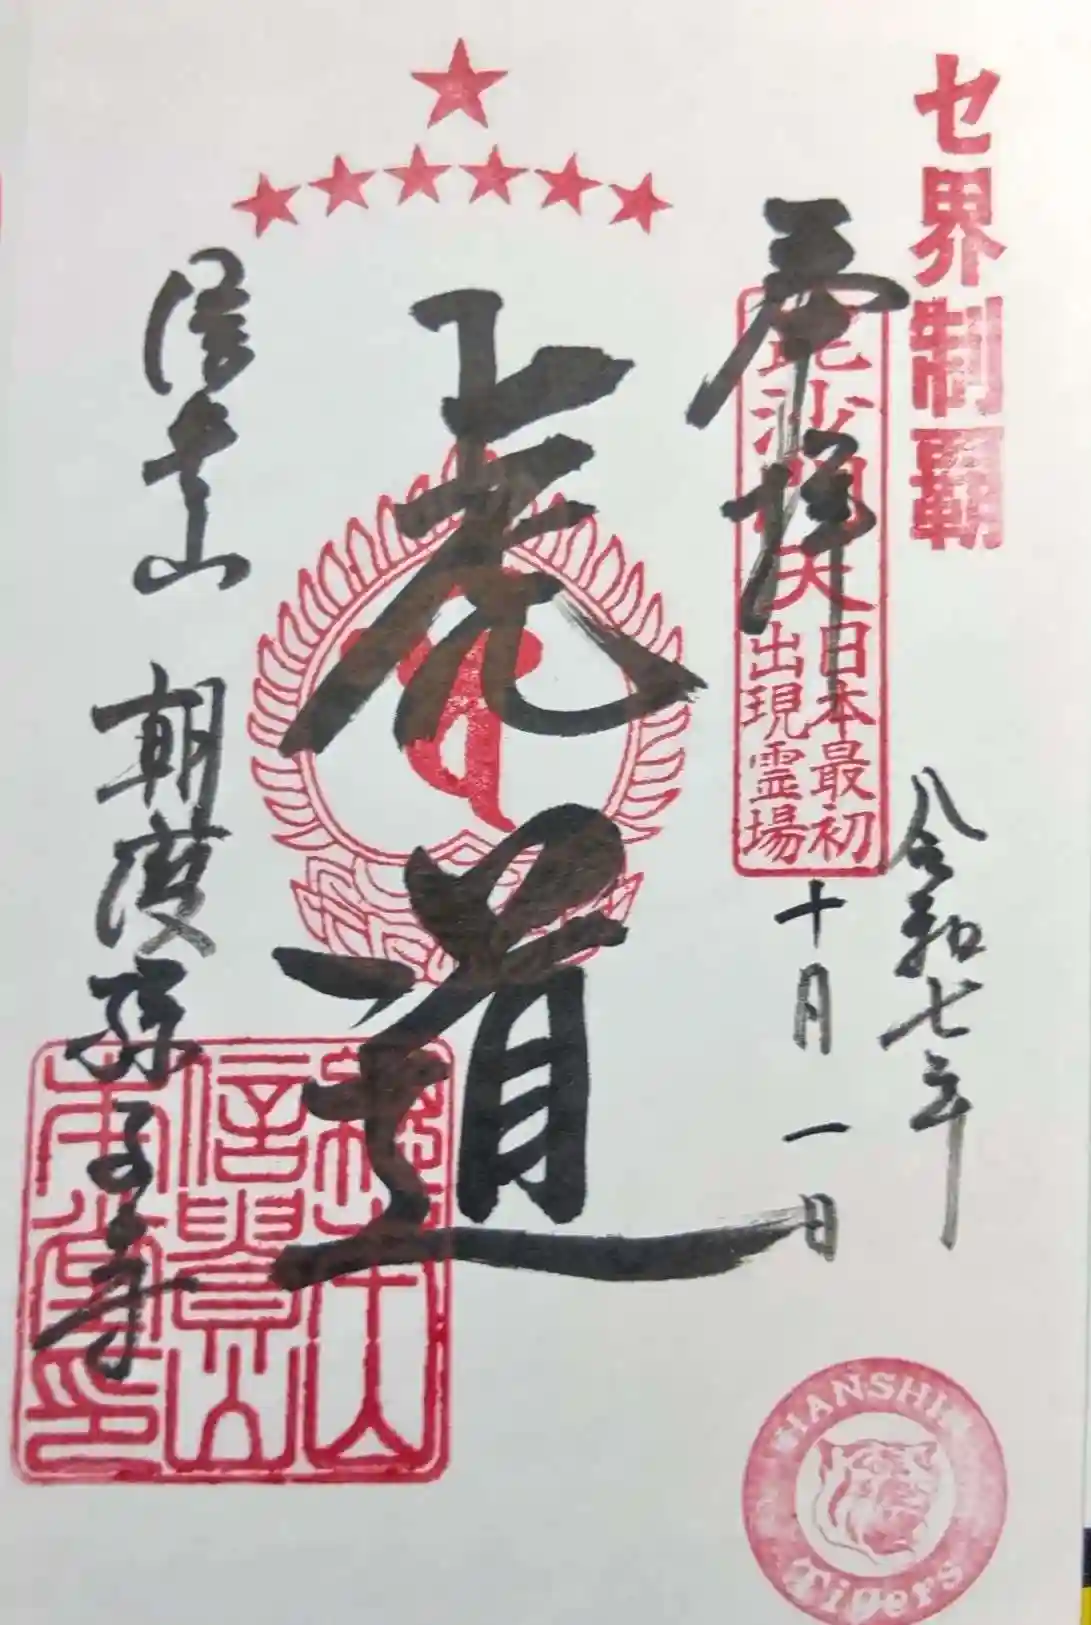 セ界制覇
奉拝
毘沙門天
日本最初
出現霊場
令和七年
十月一日
虎道
信貴山 朝護孫子寺
総本山
信貴山
本堂印
HANSHIN
Tigers